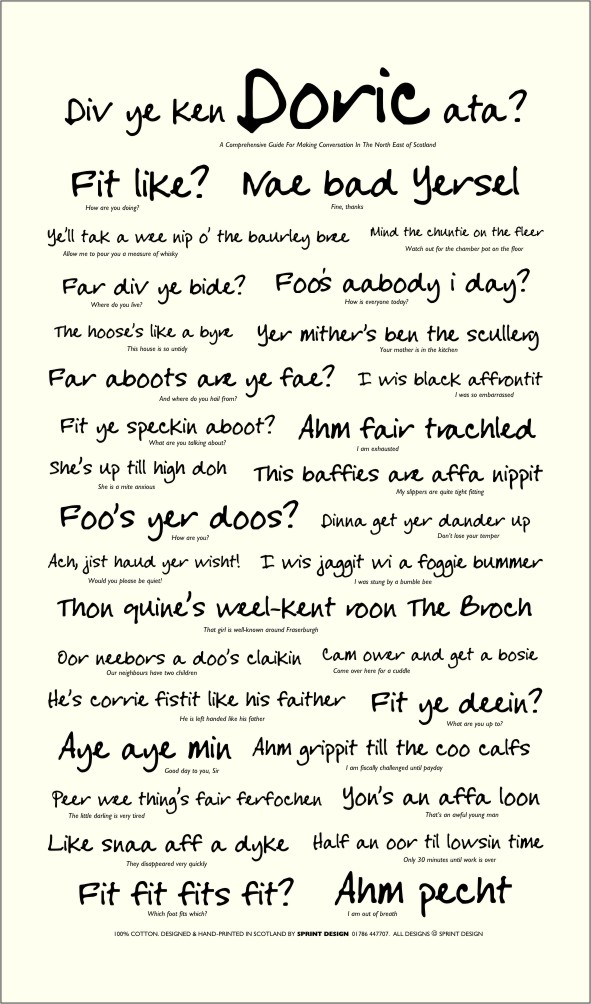 Div ye ken Doric ata?
A Comprehensive Guide For Making Conversation In The North East of Scotland
Fit like? Nae bad Yersel
How are you doing? Fine, thanks
Ye'll tak a wee nip o' the baurley bree Mind the chuntie on the fleer
Allow me to pour you a measure of whisky Watch out for the chamber pot on the floor
Far div ye bide? Foo's aabody i day?
Where do you live? How is everyone today?
The hoose's like a byre Yer mither's ben the scullerg
This house is so untidy Your mother is in the kitchen
Far aboots are ye fae? I wis black affrontit
And where do you hail from? I was so embarrassed
Fit ye speckin aboot? Ahm fair trachled
What are you talking about? I am exhausted
She's up till high doh This baffies are affa nippit
She is a mite anxious My slippers are quite tight fitting
Foo's yer doos? Dinna get yer dander up
How are you? Don't lose your temper
Ach, jist haud yer wisht! I wis jaggit wi a foggie bummer
Would you please be quiet! I was stung by a bumble bee
Thon quine's weel-kent roon The Broch
That girl is well-known around Fraserburgh
Oor neebors a doo's claikin Cam ower and get a bosie
Our neighbours have two children Come over here for a cuddle
He's corrie fistit like his faither Fit ye deein?
He is left handed like his father What are you up to?
Aye aye min Ahm grippit till the coo calfs
Good day to you, Sir I am fiscally challenged until payday
Peer wee thing's fair ferfochen Yon's an affa loon
The little darling is very tired That's an awful young man
Like snaa aff a dyke Half an oor til lowsin time
They disappeared very quickly Only 30 minutes until work is over
Fit fit fits fit? Ahm pecht
Which foot fits which? I am out of breath
100% COTTON. DESIGNED & HAND-PRINTED IN SCOTLAND BY SPRINT DESIGN 01786 447707. ALL DESIGNS @ SPRINT DESIGN